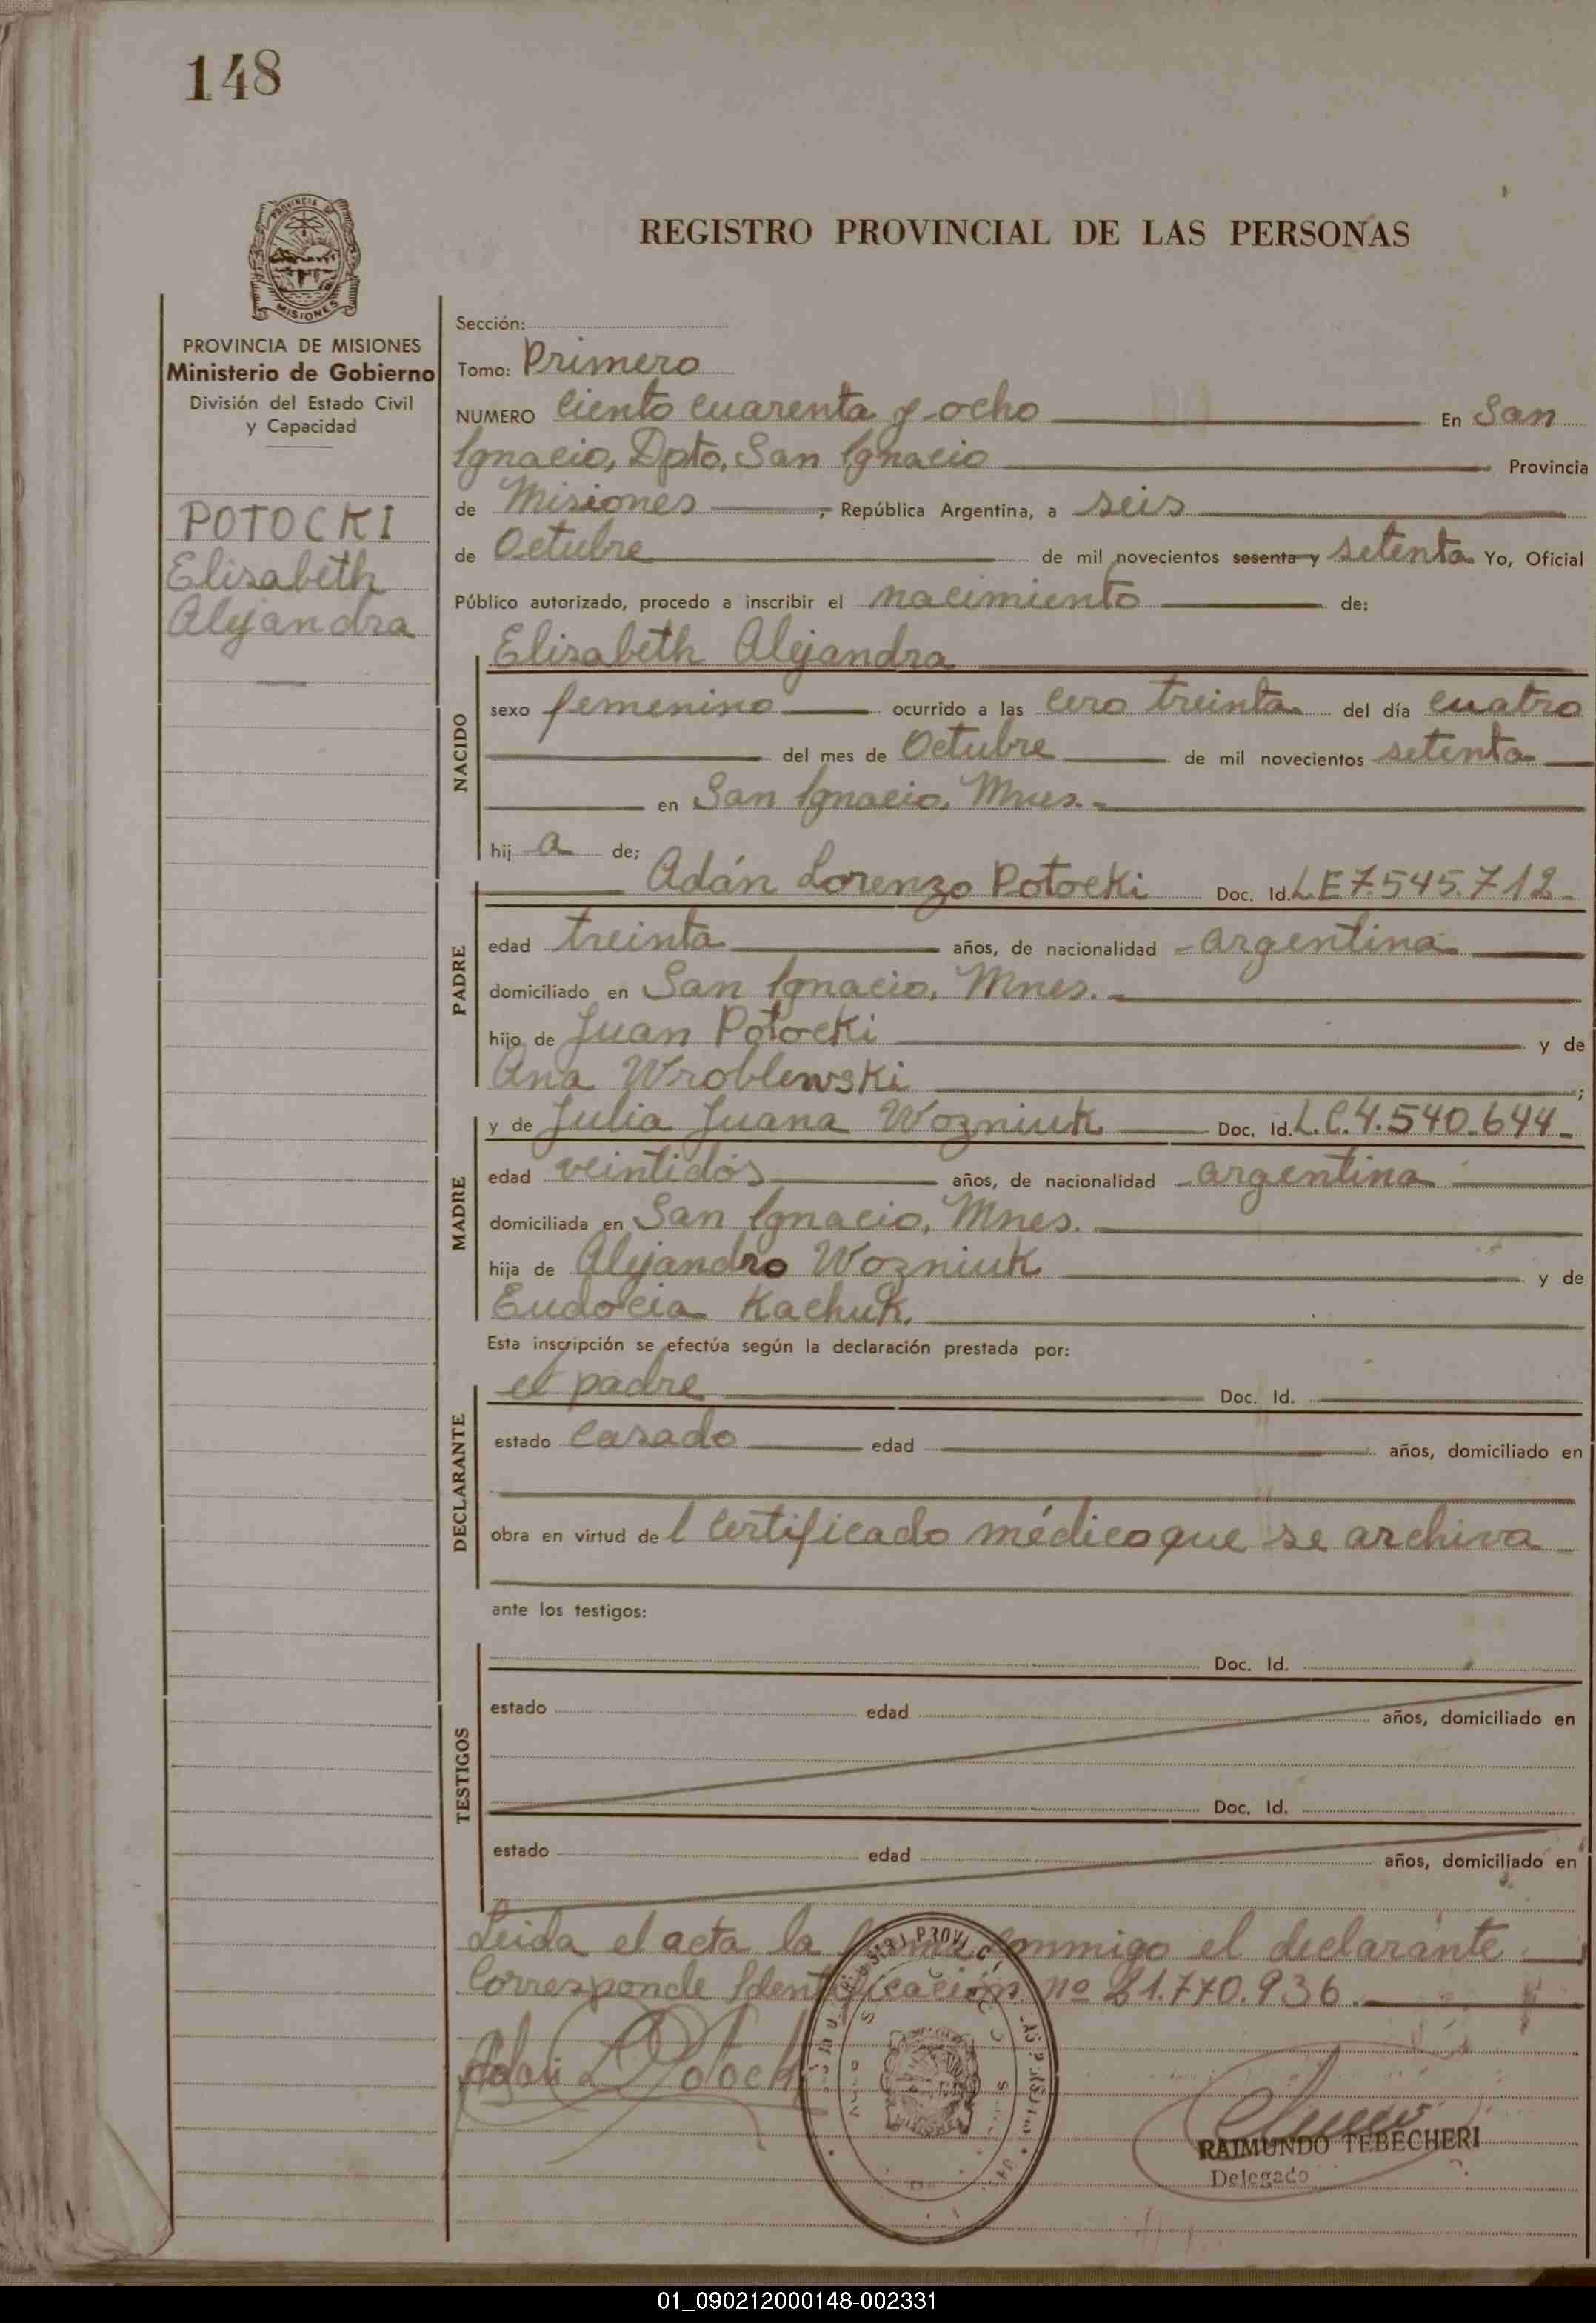 148
PROVINCIA DE
MISIONES
REGISTRO PROVINCIAL DE LAS PERSONAS
PROVINCIA DE MISIONES
Ministerio de Gobierno
División del Estado Civil
y Capacidad
POTOCKI
Elisabeth
Alejandra
Sección:
Tomo: Primero
NUMERO Ciento cuarenta y ocho En San
Ignacio, Dpto, San Ignacio Provincia
de Misiones, República Argentina, a seis
de Octubre de mil novecientos sesenta y setenta Yo, Oficial
Público autorizado, procedo a inscribir el nacimiento de:
NACIDO
Elisabeth Alejandra
sexo femenino ocurrido a las cero treinta del día cuatro
del mes de Octubre de mil novecientos setenta
en San Ignacio, Mnes.-
hij a de;
PADRE
Adán Lorenzo Potocki Doc. Id. L.E 7.545.712-
edad treinta años, de nacionalidad argentina
domiciliado en San Ignacio, Mnes.-
hijo de Juan Potocki y de
Ana Wroblewski ;
MADRE
y de Julia Juana Wozniuk Doc. Id. L.C. 4.540.644-
edad veintidós años, de nacionalidad argentina
domiciliada en San Ignacio, Mnes.
hija de Alejandro Wozniuk y de
Eudocia Kachuk.
Esta inscripción se efectúa según la declaración prestada por:
DECLARANTE
el padre Doc. Id.
estado casado edad años, domiciliado en
obra en virtud de l certificado médico que se archiva
ante los testigos:
TESTIGOS
Doc. Id.
estado edad años, domiciliado en
Doc. Id.
estado edad años, domiciliado en
Leida el acta la firma conmigo el declarante
Corresponde Identificación nº 21.770.936.
Adan L Potocki
RAIMUNDO TEBECHERI
Delegado
01_090212000148-002331